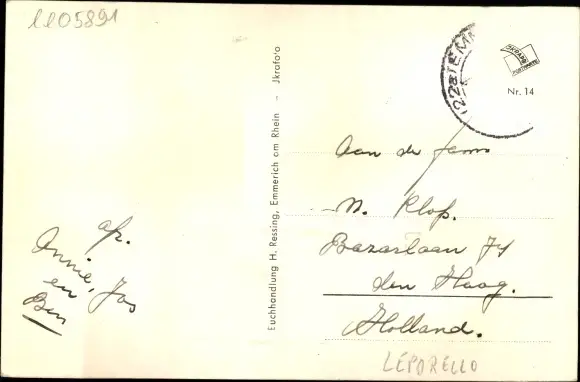 LL05891
22a EMM
Nr. 14
Buchhandlung H. Ressing, Emmerich am Rhein - Jkrafoto
Aan de fam.
N. Klop.
Bazarlaan 74
den Haag.
Holland.
afz.
Annie, Jos
en
Ben
LEPORELLO